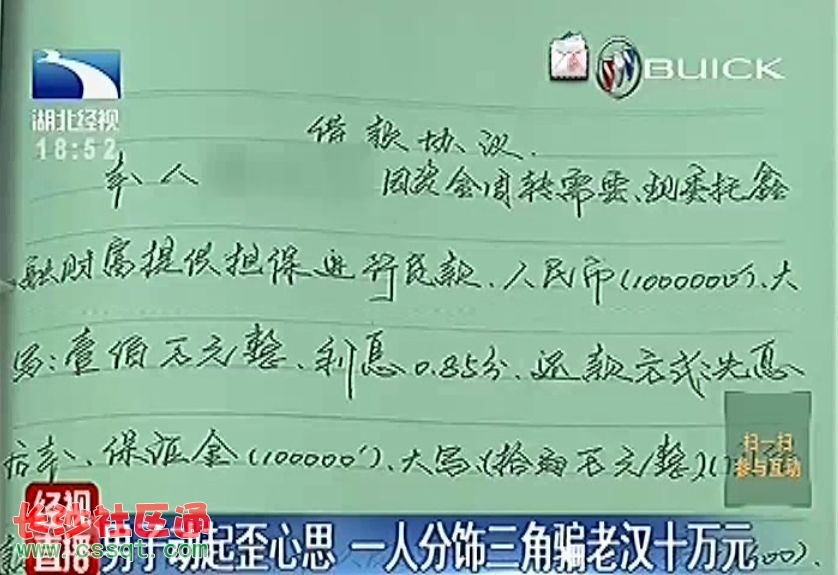 BUICK
湖北经视
18:52
借款协议.
本人 因资金周转需要、现委托鑫
融财富提供担保进行贷款、人民币(1000000)、大
写:壹佰万元整、利息0.85分、还款方式:先息
后本、保证金(100000)、大写(拾万元整)
扫一扫
参与互动
经视
直播
长沙社区通
www.cssqt.com
男子动起歪心思 一人分饰三角骗老汉十万元
00).